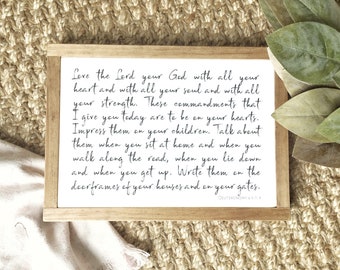 Love the Lord your God with all your
heart and with all your soul and with all
your strength. These commandments that
I give you today are to be on your hearts.
Impress them on your children. Talk about
them when you sit at home and when you
walk along the road, when you lie down
and when you get up. Write them on the
doorframes of your houses and on your gates.